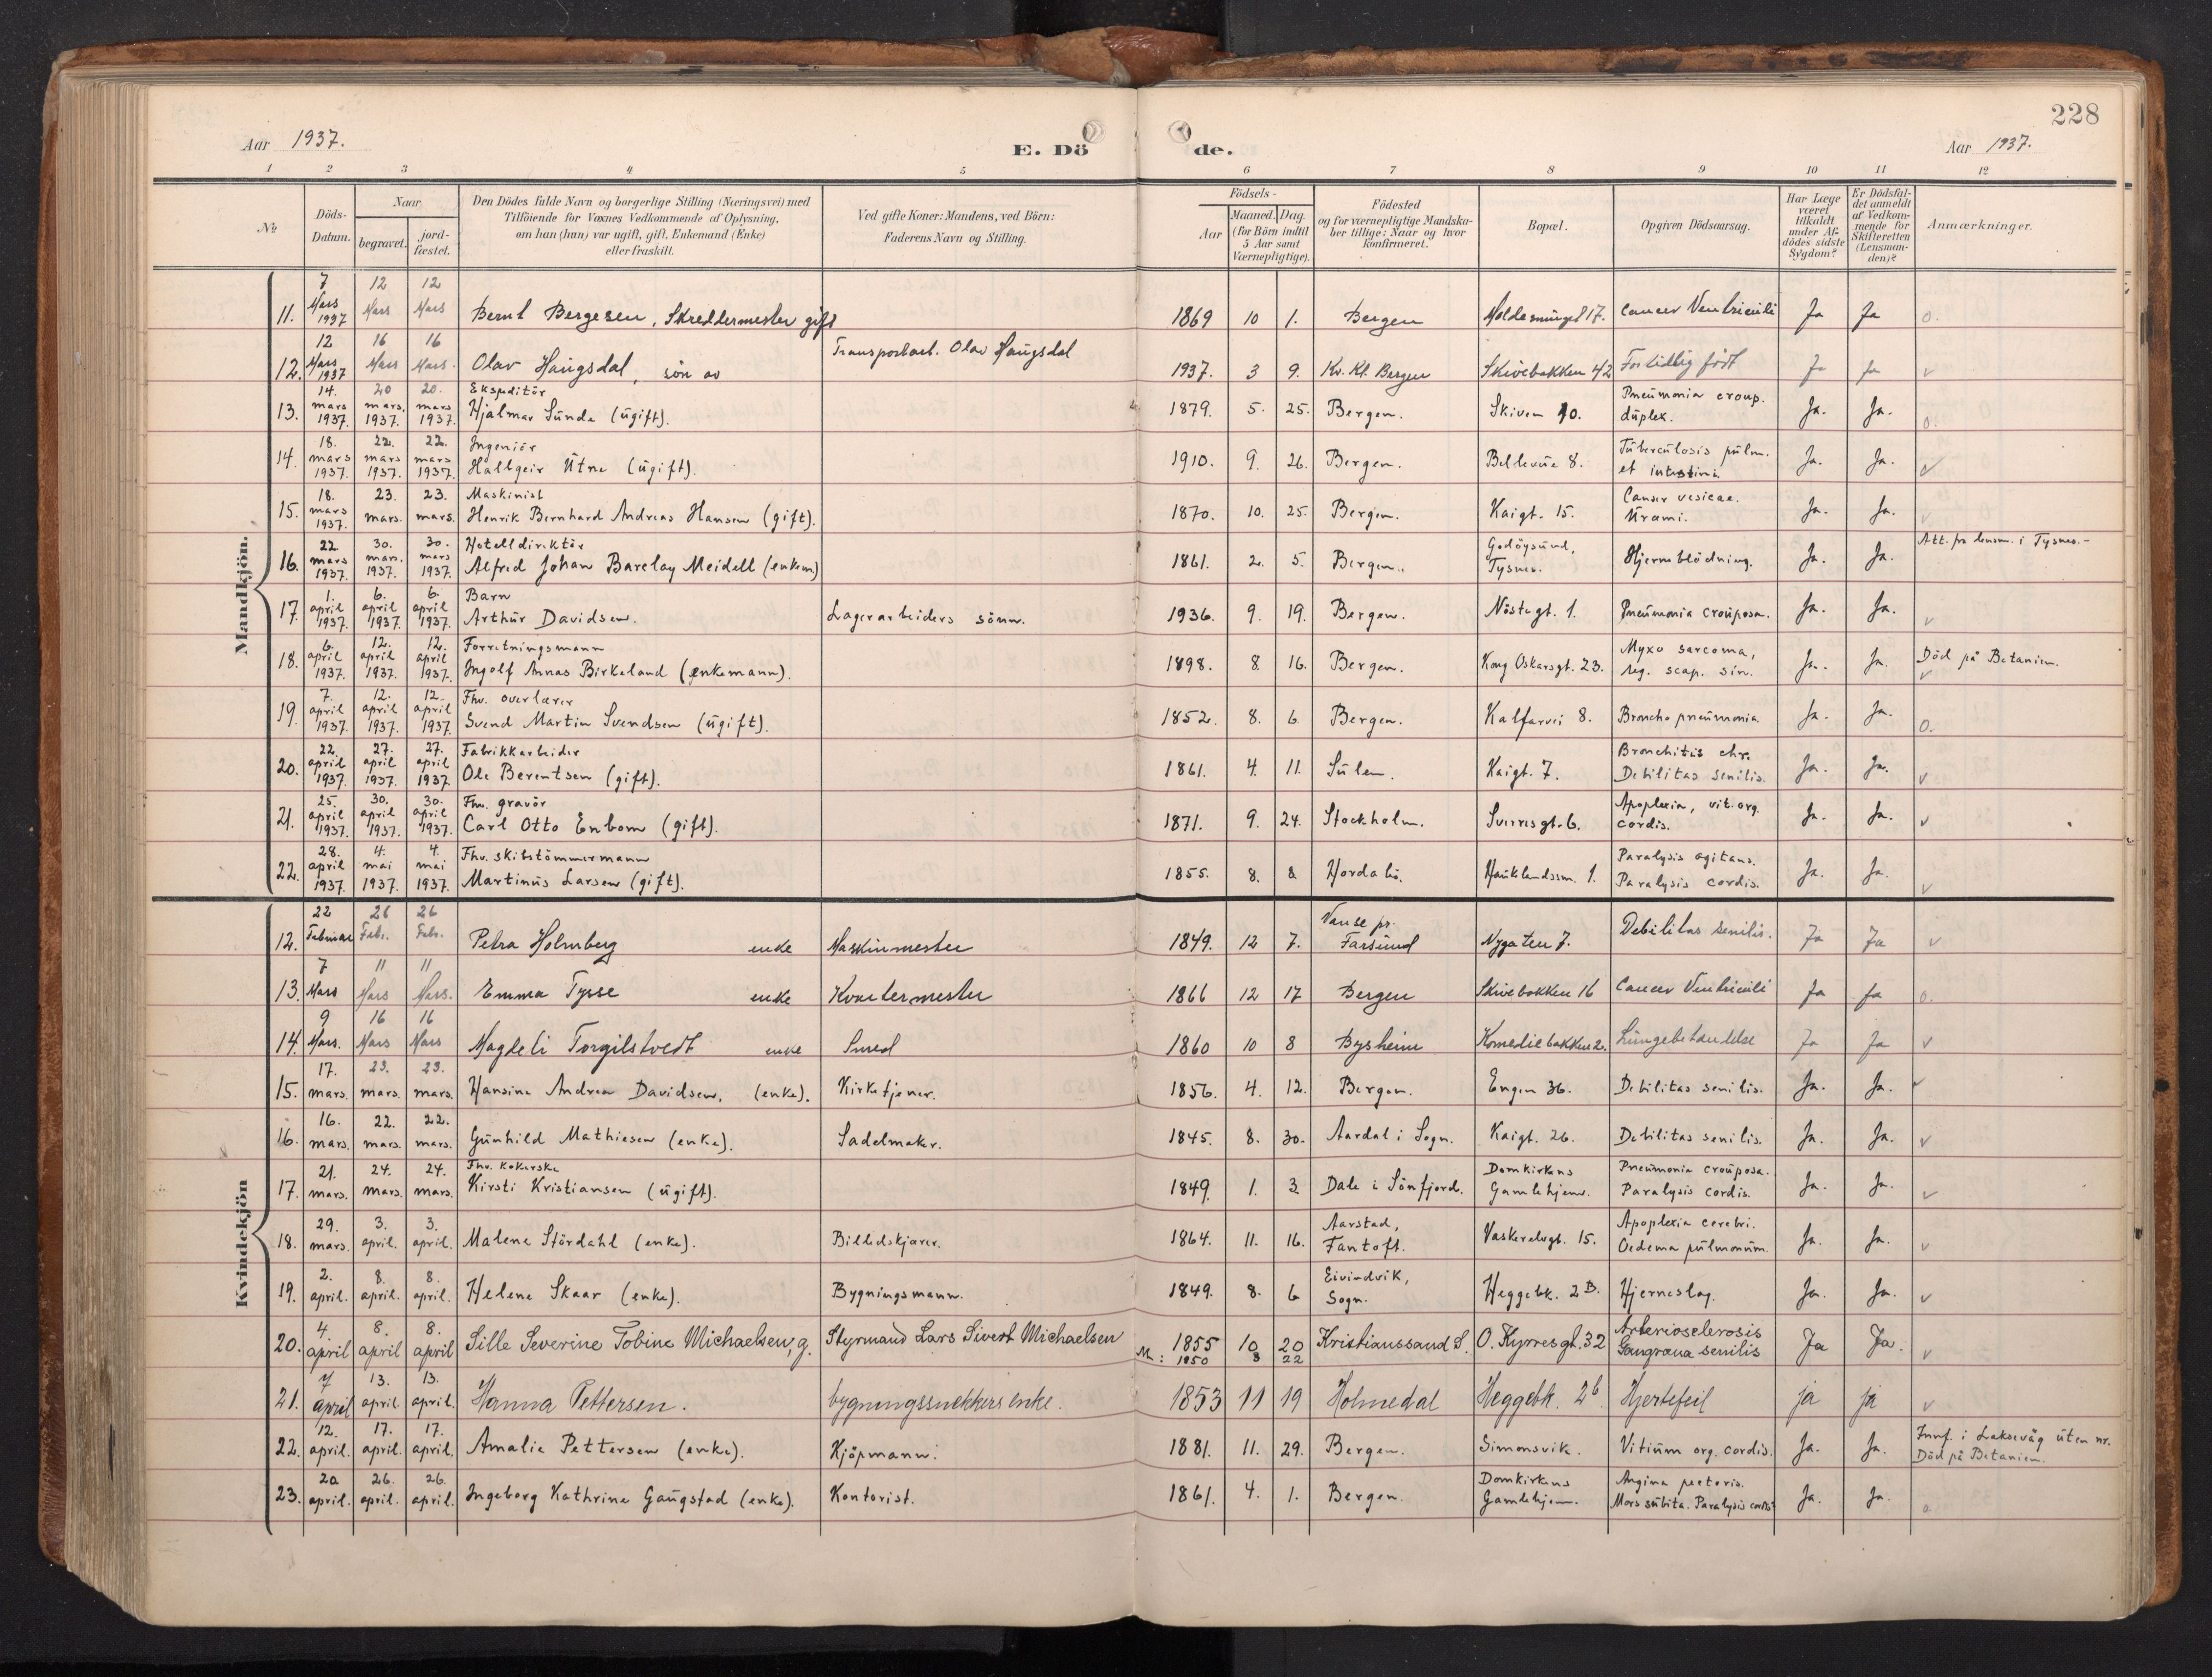 228
Aar 1937.
E. Dö de.
Aar 1937.
1 2 3 4 5 6 7 8 9 10 11 12
No
Döds-Datum.
Naar
begravet.
jord-fæstet.
Den Dödes fulde Navn og borgerlige Stilling (Næringsvei) med
Tilföiende for Voxnes Vedkommende af Oplysning,
om han (hun) var ugift, gift, Enkemand (Enke)
eller fraskilt.
Ved gifte Koner: Mandens, ved Börn:
Faderens Navn og Stilling.
Födsels-
Aar
Maaned. Dag.
(for Börn indtil
5 Aar samt
Værnepligtige).
Födested
og for værnepligtige Mandska-
ber tillige: Naar og hvor
konfirmeret.
Bopæl.
Opgiven Dödsaarsag.
Har Læge
været
tilkaldt
under Af-
dödes sidste
Sygdom?
Er Dödsfal-
det anmeldt
af Vedkom-
mende for
Skifteretten
(Lensman-
den)?
Anmærkninger.
Mandkjön.
11. 7 Mars 1937 12 Mars 12 Mars Bernt Bergesen, Skreddermester gift 1869 10 1. Bergen Moldesmuget 17. Cancer Ventriculi Ja Ja o.
12. 12 Mars 1937 16 Mars 16 Mars. Olav Haugsdal, sön av Transportarb. Olav Haugsdal 1937. 3 9. Kv. Kl. Bergen Skivebakken 42 For tidlig född Ja Ja v
13. 14. mars 1937. 20 mars, 1937. 20. mars 1937. Ekspeditör Hjalmar Sunde (ugift). 1879. 5. 25. Bergen. Skiven 10. Pneumonia croup. duplex. Ja. Ja. o.
14. 18. mars 1937. 22. mars 1937. 22. mars 1937. Ingeniör Hallgeir Utne (ugift). 1910. 9. 26. Bergen. Bellevue 8. Tuberculosis pulm. et intestini. Ja. Ja. v
15. 18. mars 1937. 23. mars. 23. mars. Maskinist Henrik Bernhard Andreas Hansen (gift). 1870. 10. 25. Bergen. Kaigt. 15. Cancer vesicae. Urami. Ja. Ja. v
16. 22. mars 1937. 30. mars. 1937. 30. mars 1937. Hotelldirektör Alfred Johan Barclay Meidell (enkem) 1861. 2. 5. Bergen. Godöysund, Tysnes. Hjerneblödning. Ja. Ja. Att. fra lensm. i Tysnes.-
17. 1. april 1937. 6. april 1937. 6. april 1937. Barn Arthur Davidsen. Lagerarbeiders sönn. 1936. 9. 19. Bergen. Nöstegt. 1. Pneumonia crouposa. Ja. Ja. v
18. 6. april 1937. 12. april 1937. 12. april 1937. Forretningsmann Ingolf Annas Birkeland (enkemann). 1898. 8. 16. Bergen. Kong Oskarsgt. 23. Myxo sarcoma, reg. scap. sin. Ja. Ja. Död på Betanien. v
19. 7. april 1937. 12. april 1937. 12. april 1937. Fhv. overlærer Svend Martin Svendsen (ugift). 1852. 8. 6. Bergen. Kalfarvei 8. Broncho pneumonia. Ja. Ja. o.
20. 22. april 1937. 27. april 1937. 27. april 1937. Fabrikkarbeider Ole Berentsen (gift). 1861. 4. 11. Sulen. Kaigt. 7. Bronchitis chr. Debilitas senilis. Ja. Ja. v
21. 25. april 1937. 30. april 1937. 30. april 1937. Fhv. gravör Carl Otto Enbom (gift). 1871. 9. 24. Stockholm. Sverresgt. 6. Apoplexia, vit. org. cordis. Ja. Ja. v
22. 28. april 1937. 4. mai 1937. 4. mai 1937. Fhv. skibstömmermann Martinus Larsen (gift). 1855. 8. 8. Hordabö. Hauklandssm. 1. Paralysis agitans. Paralysis cordis. Ja. Ja. v
Kvindekjön
12. 22 Februar 26 Febr. 26 Febr. Petra Holmberg enke Maskinmester 1849. 12 7. Vanse pr. Farsund Nygaten 7. Debilitas senilis. Ja Ja v
13. 7 Mars 11 Mars 11 Mars. Emma Tysse enke Kvartermester 1866 12 17 Bergen Skivebakken 16 Cancer Ventriculi Ja Ja o.
14. 9 Mars. 16 Mars 16 Mars Magdeli Torgilstvedt enke Smed 1860 10 8 Bysheim Komediebakken 2. Lungebetendelse Ja Ja v
15. 17. mars. 23. mars. 23. mars. Hansine Andrea Davidsen. (enke). Kirketjener. 1856. 4. 12. Bergen. Engen 36. Debilitas senilis. Ja. Ja. v
16. 16. mars. 22. mars. 22. mars. Gunhild Mathiesen (enke). Sadelmaker. 1845. 8. 30. Aardal i Sogn. Kaigt. 26. Debilitas senilis. Ja. Ja. v
17. 21. mars. 24. mars. 24. mars. Fhv. kokerske Kirsti Kristiansen (ugift). 1849. 1. 3 Dale i Sönfjord. Domkirkens Gamlehjem. Pneumonia crouposa. Paralysis cordis. Ja. Ja. v
18. 29. mars. 3. april. 3. april. Malene Stördahl (enke). Billedskjærer. 1864. 11. 16. Aarstad, Fantoft. Vaskerelvgt. 15. Apoplexia cerebri. Oedema pulmonum. Ja. Ja. v
19. 2. april. 8. april. 8. april. Helene Skaar (enke). Bygningsmann. 1849. 8. 6 Eivindvik, Sogn. Heggebk. 2 B. Hjerneslag. Ja. Ja. v
20. 4. april 8. april 8. april Sille Severine Tobine Michaelsen, g. Styrmand Lars Sivert Michaelsen M: 1855 1850 10 8 20 22 Kristianssand S. O. Kyrresgt. 32 Arteriosclerosis Gangræna senilis Ja Ja. v
21. 7 april 13. april. 13. april. Hanna Pettersen. bygningssnekkers enke. 1853 11 19 Holmedal Heggebk. 2 b. Hjertefeil ja ja v
22. 12. april. 17. april. 17. april. Amalie Pettersen (enke). Kjöpmann. 1881. 11. 29. Bergen. Simonsvik. Vitium org. cordis. Ja. Ja. Innf. i Laksevåg uten nr. Död på Betanien.
23. 20 april. 26. april. 26. april. Ingeborg Kathrine Gaugstad (enke). Kontorist. 1861. 4. 1. Bergen. Domkirkens Gamlehjem. Angina pectoris. Mors subita. Paralysis cordis. Ja. Ja. o.